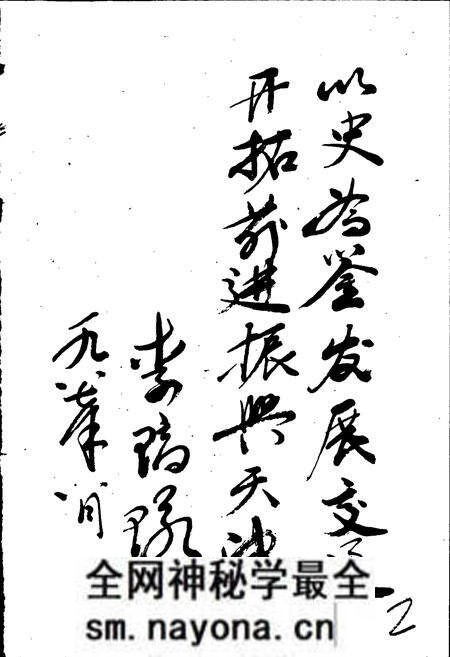 以史為鉴发展交
开拓前进振兴天津
李瑞环
一九八七年八月
全网神秘学最全
sm.nayona.cn